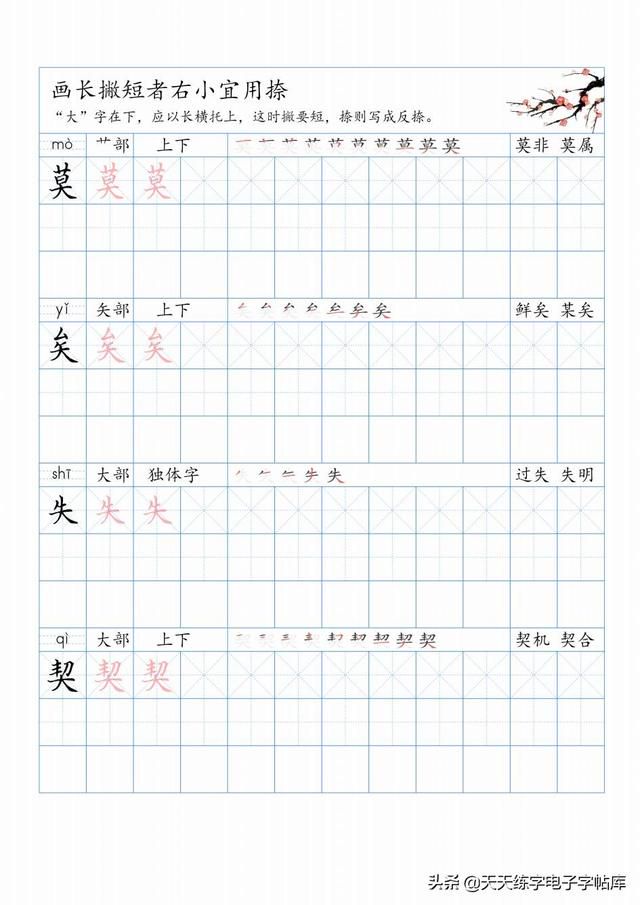 画长撇短者右小宜用捺
“大”字在下，应以长横托上，这时撇要短，捺则写成反捺。
mò 艹部 上下 莫非 莫属
莫 莫 莫
yǐ 矢部 上下 鲜矣 某矣
矣 矣 矣
shī 大部 独体字 过失 失明
失 失 失
qì 大部 上下 契机 契合
契 契 契
头条 @天天练字电子字帖库